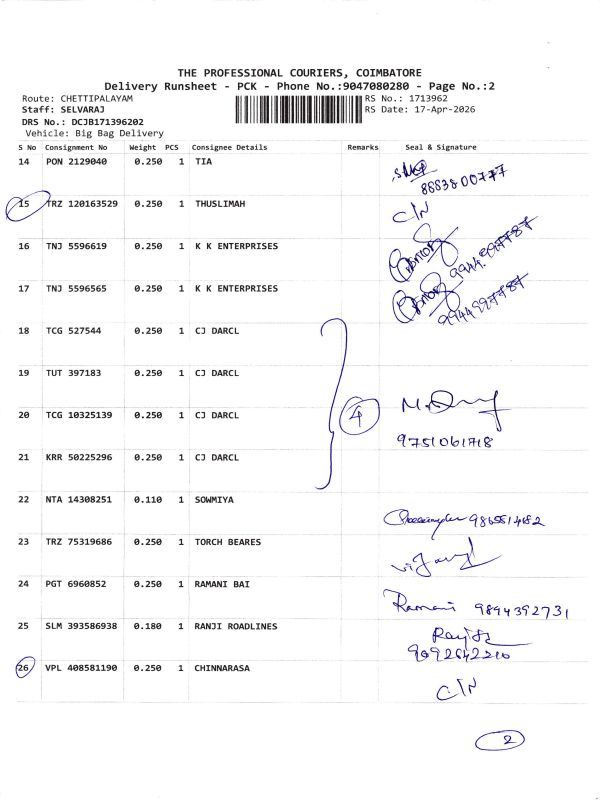 THE PROFESSIONAL COURIERS, COIMBATORE
Delivery Runsheet - PCK - Phone No.:9047080280 - Page No.:2
Route: CHETTIPALAYAM RS No.: 1713962
Staff: SELVARAJ RS Date: 17-Apr-2026
DRS No.: DCJB171396202
Vehicle: Big Bag Delivery
S No Consignment No Weight PCS Consignee Details Remarks Seal & Signature
14 PON 2129040 0.250 1 TIA
8883800777
15 TRZ 120163529 0.250 1 THUSLIMAH C/N
16 TNJ 5596619 0.250 1 K K ENTERPRISES
9944997787
17 TNJ 5596565 0.250 1 K K ENTERPRISES
9944997787
18 TCG 527544 0.250 1 CJ DARCL
19 TUT 397183 0.250 1 CJ DARCL
20 TCG 10325139 0.250 1 CJ DARCL 4
9751061718
21 KRR 50225296 0.250 1 CJ DARCL
22 NTA 14308251 0.110 1 SOWMIYA
23 TRZ 75319686 0.250 1 TORCH BEARES
24 PGT 6960852 0.250 1 RAMANI BAI Ramani 9894392731
25 SLM 393586938 0.180 1 RANJI ROADLINES
9092642210
26 VPL 408581190 0.250 1 CHINNARASA C/N
2